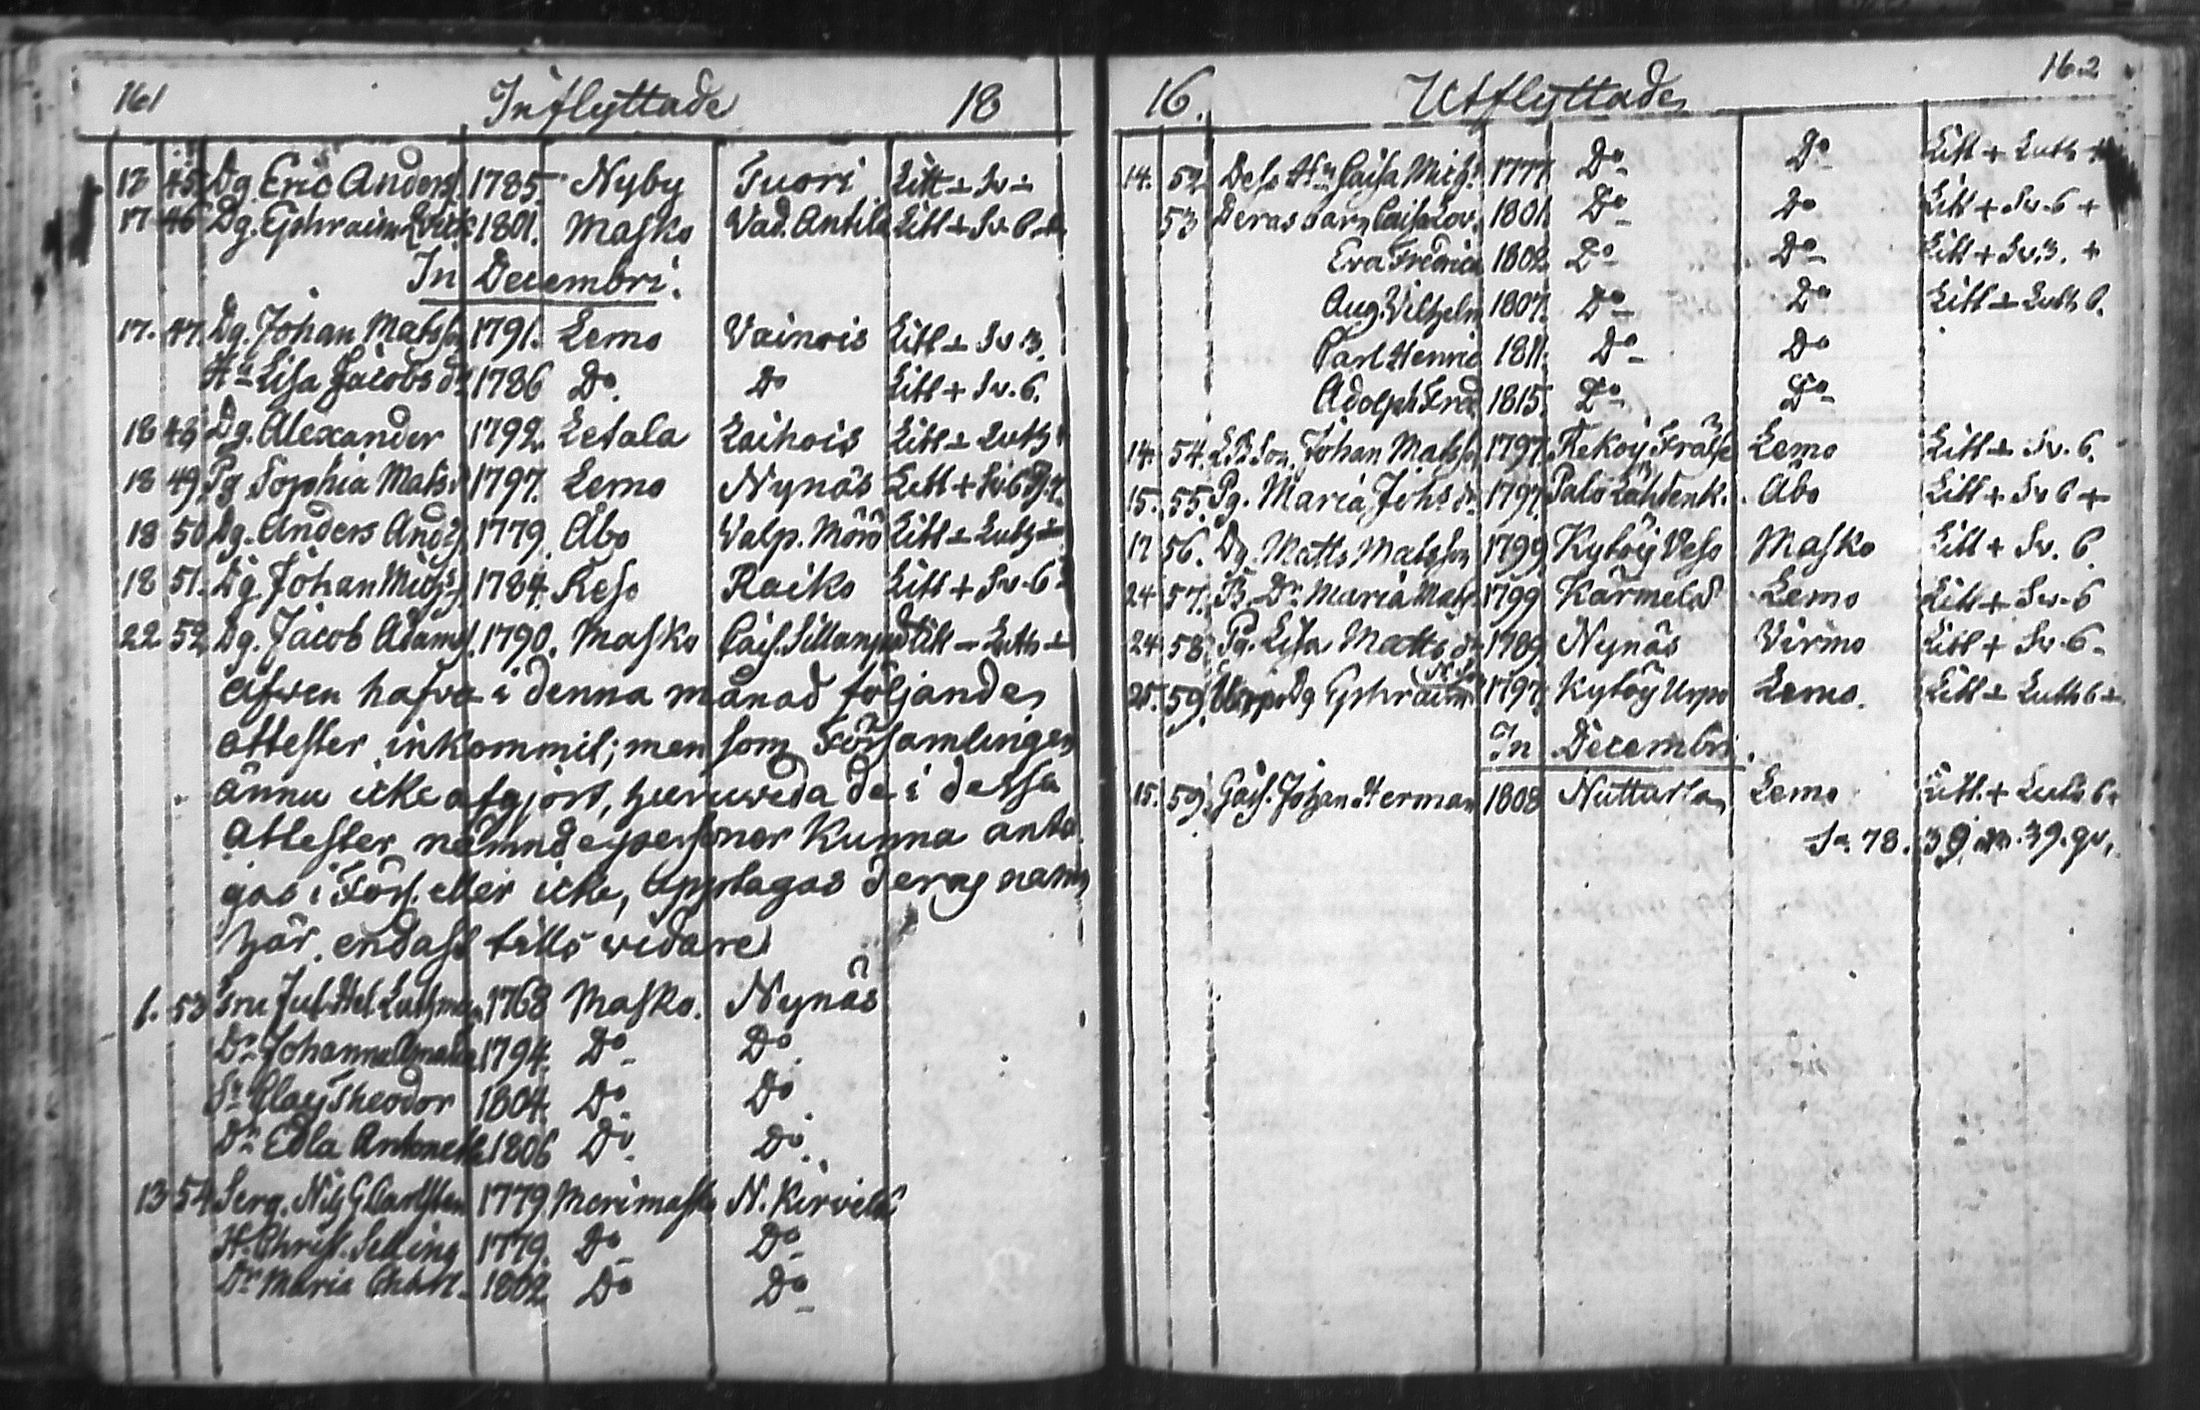 161 Inflyttade 18
13 45 Dg. Eric Anders. 1785. Nyby Tuori Litt + Sv +
17 46 Dg. Ephraim 1801. Masko Wad. Antila Litt + Sv. 6. +
In Decembri.
17. 47. Dg. Johan Matsson 1791. Lemo Vainois Litt + Sv 3.
Hu Lisa Jacobs dr 1786 Do. Do Litt + Sv. 6.
18 48 Dg. Alexander 1792. Letala Laihois Litt + Luth
18 49 Pg Sophia Mats. 1797. Lemo Nynäs Litt + Sv 6
18 50 Dg. Anders And. 1779. Åbo Valp. Mörö Litt + Luth +
18 51. Dg. Johan Mich. 1784. Reso Raiko Litt + Sv. 6
22 52 Dg. Jacob Adams. 1790. Masko Litt - Luth +
äfwen hafva i denna månad följande
attester inkommit; men som Församlingen
ännu icke afgjort, huruwida de i dessa
attester nämnde personer kunna anta
gas i Förs. eller icke, upptagas deras namn
här endast tills widare
1. 53 Fru Jul. Hel. Luthman 1768 Masko. Nynäs
Dr Johanna Amalia 1794. Do Do
Sn Claes Theodor 1804. Do. Do.
Dr Edla Antonette 1806 Do. Do.
13 54 Serg. Nils G Carlsten 1779. Merimasko N. Kirvelä
H. Christ. Selling 1779. Do Do
Dr Maria Charl. 1802. Do Do
16. Utflyttade 162
14. 52 Dess Hu Caisa Mich. 1777 Do Do Litt + Luth +
53 Deras barn Caisa Lov. 1801. Do Do Litt + Sv. 6 +
Eva Fredrica 1802. Do Do Litt + Sv. 3. +
Aug. Vilhelm 1807. Do Do Litt + Luth 6.
Carl Henric 1811. Do Do
Adolph Fred 1815. Do Do
14. 54. Son. Johan Matsson 1797. Lemo Litt + Sv. 6.
15. 55. Pg. Maria Johs dr 1797. Palo Lähdenk. Åbo Litt + Sv 6 +
17 56. Dg. Matts Matsson 1799 Kyløy Veso Masko Litt + Sv. 6.
24 57. B. Dr Maria Mats. 1799 Kärmelä Lemo Litt + Sv. 6
24 58. Pg. Lisa Matts dr 1789 Nynäs Virmo Litt + Sv. 6
25. 59. Dg Ephraim 1797. Urpo Lemo. Litt + Luth 6 +
In Decembri.
15. 59. Johan Herman 1808 Nuttarla Lemo Litt. + Luth 6 +
Sa. 78. 39. m. 39. qv.